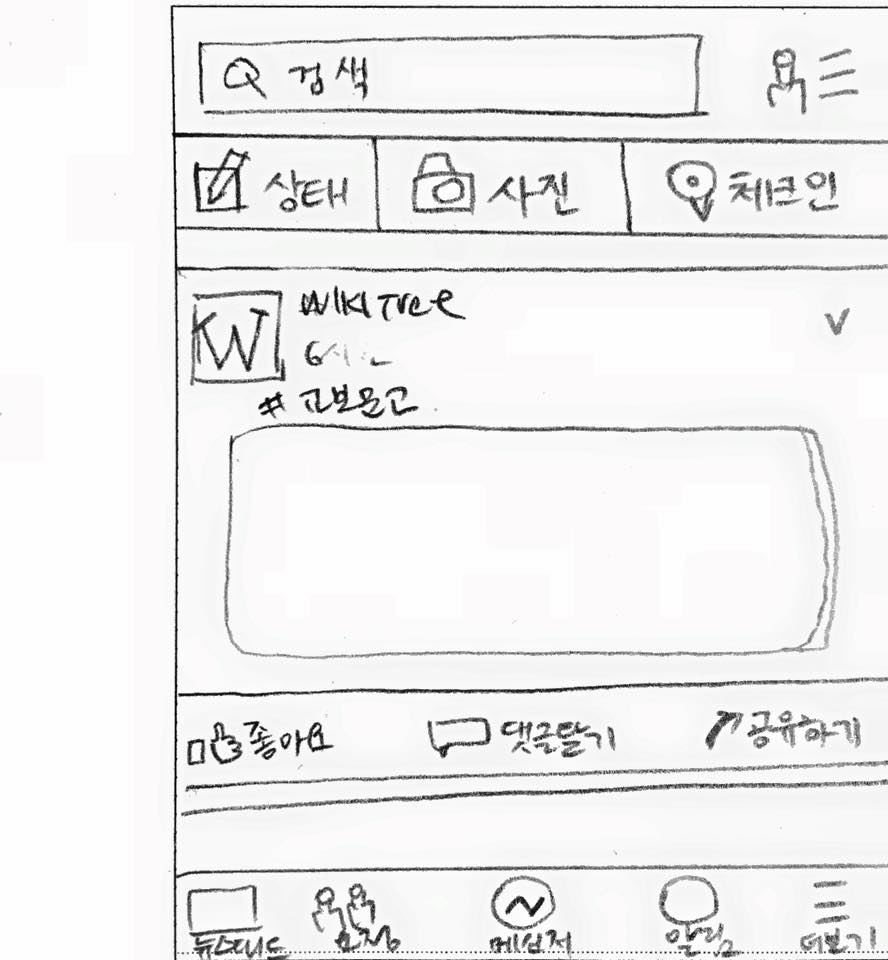 검색
상태 사진 체크인
W WIKITree
6시간
# 교보문고
좋아요 댓글달기 공유하기
뉴스피드 요청 메신저 알림 더보기